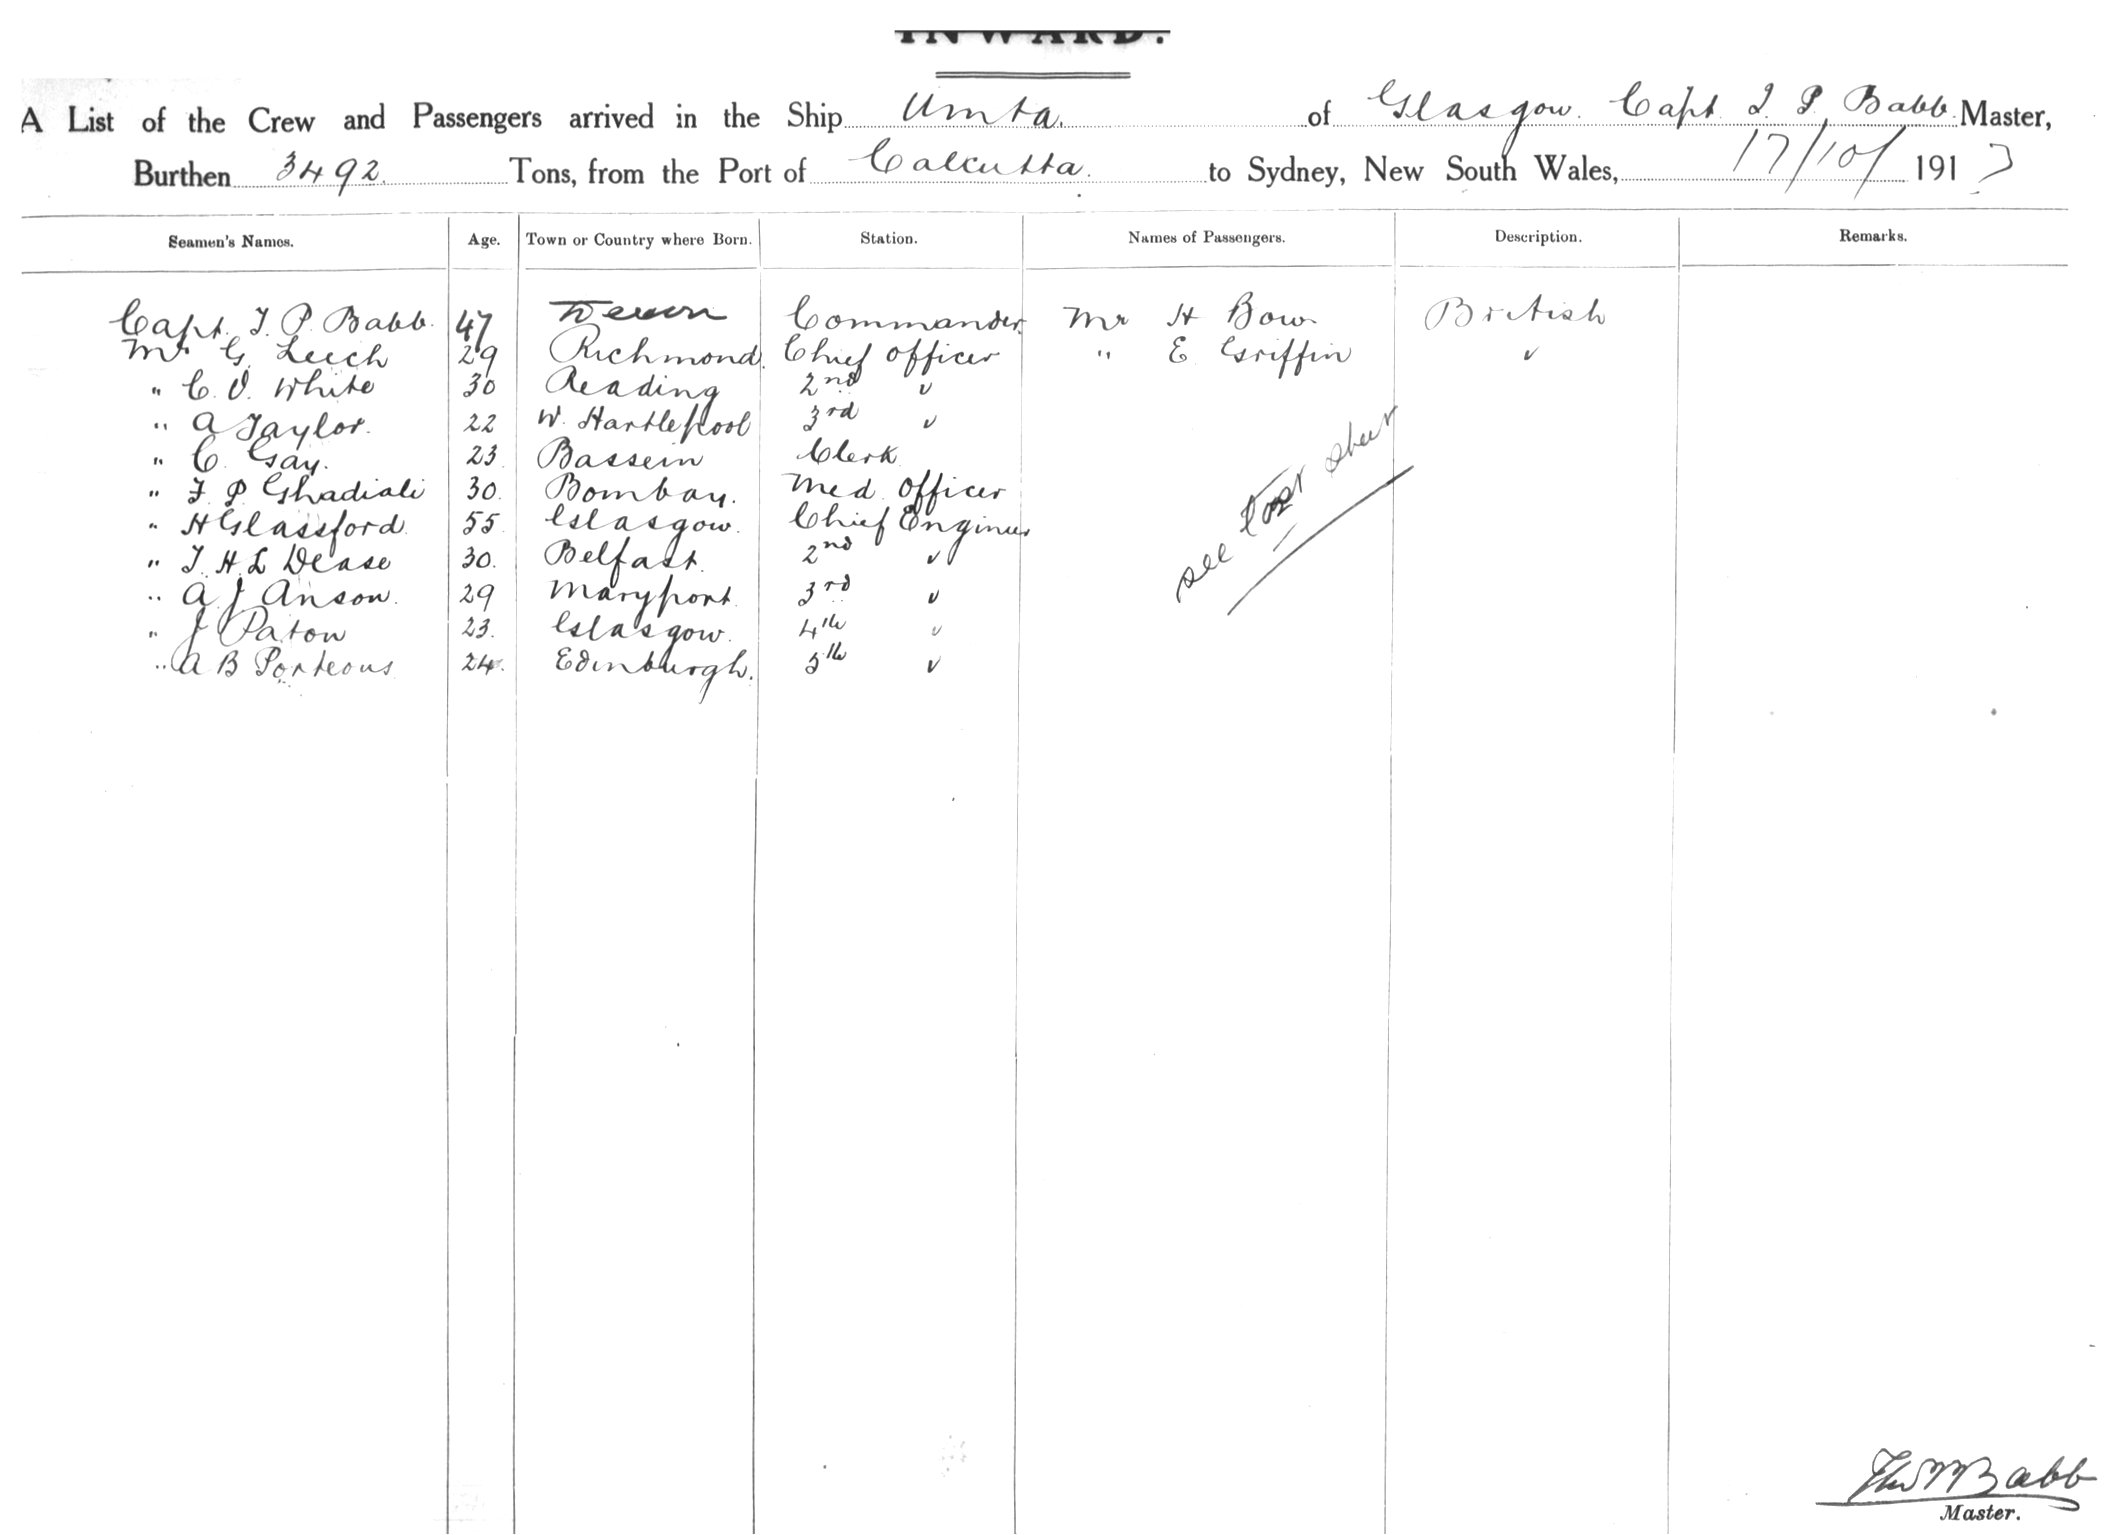 INWARD.
A List of the Crew and Passengers arrived in the Ship Umta. of Glasgow. Capt. T. P. Babb. Master,
Burthen 3492. Tons, from the Port of Calcutta. to Sydney, New South Wales, 17/10/ 191
Seamen's Names. Age. Town or Country where Born. Station. Names of Passengers. Description. Remarks.
Capt. T. P. Babb. 47 Devon Commander. Mr H Bow British
Mr G. Leech 29 Richmond. Chief Officer " E Griffin "
" C. V. White 30 Reading 2nd "
" A Taylor. 22 W. Hartlepool 3rd "
" C. Gay. 23 Bassein Clerk
" F. P. Ghadiali 30. Bombay. Med Officer
" H Glassford. 55 Glasgow. Chief Engineer
" T. H. L Dease 30. Belfast. 2nd "
" A J Anson. 29 Maryport. 3rd "
" J Paton 23. Glasgow. 4th "
" A B Porteous 24. Edinburgh. 5th "
see last sheet
Babb
Master.